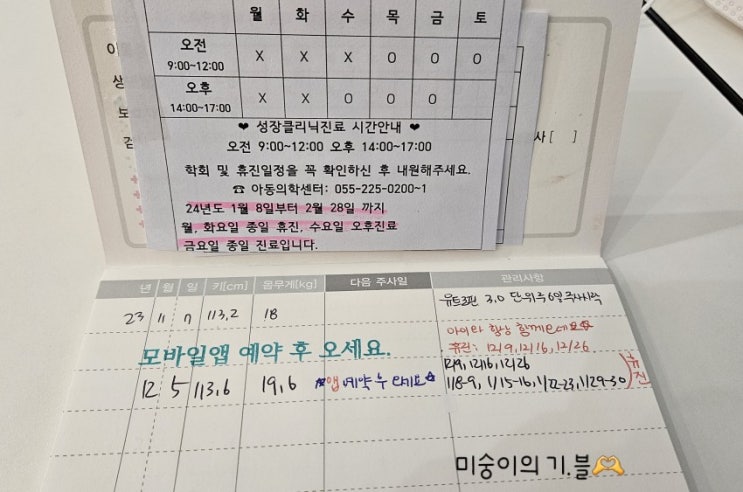 월 화 수 목 금 토
오전 9:00~12:00 X X X O O O
오후 14:00~17:00 X X O O O
❤ 성장클리닉진료 시간안내 ❤
오전 9:00~12:00 오후 14:00~17:00
학회 및 휴진일정을 꼭 확인하신 후 내원해주세요.
☎ 아동의학센터: 055-225-0200~1
24년도 1월 8일부터 2월 28일 까지
월, 화요일 종일 휴진, 수요일 오후진료
금요일 종일 진료입니다.
년 월 일 키[cm] 몸무게[kg] 다음 주사일 관리사항
23 11 113,2 18 3.0 단위 주6일
휴진: 12/9, 12/16, 12/26
모바일앱 예약 후 오세요.
12/9, 12/16, 12/26
12 5 113,6 19,6 앱 예약 후 1/8-9, 1/15-16, 1/22-23, 1/29-30 휴진
미숭이의 기.블